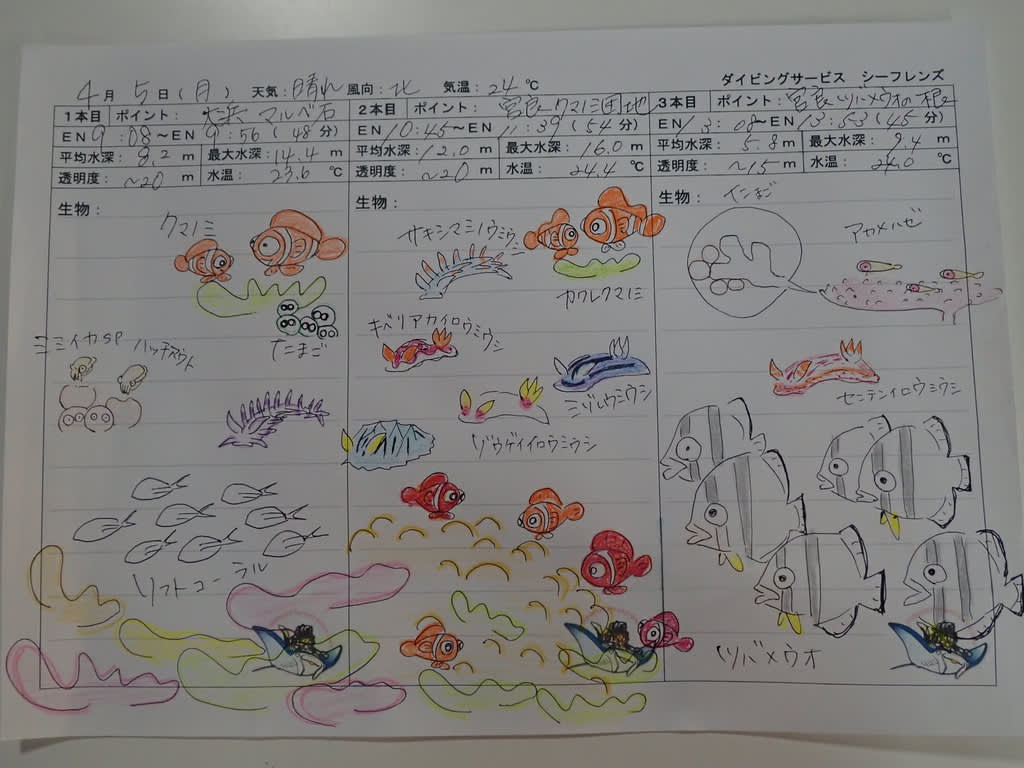 ダイビングサービス シーフレンズ
4月5日(月) 天気:晴れ 風向:北 気温:24℃
1本目 ポイント: 大浜 マルベ石
EN 9:08~EN 9:56(48分)
平均水深: 8.2 m 最大水深: 14.4 m
透明度: ~20 m 水温: 23.6 ℃
生物:
クマノミ
たまご
ミミイカSP ハッチアウト
ソフトコーラル
2本目 ポイント: 宮良クマノミ団地
EN 10:45~EN 11:39(54分)
平均水深: 12.0 m 最大水深: 16.0 m
透明度: ~20 m 水温: 24.4 ℃
生物:
サキシマミノウミウシ
カクレクマノミ
キベリアカイロウミウシ
ミゾレウミウシ
ゾウゲイロウミウシ
3本目 ポイント: 宮良ツバメウオの根
EN 13:08~EN 13:53(45分)
平均水深: 5.8 m 最大水深: 9.4 m
透明度: ~15 m 水温: 24.0 ℃
生物:
たまご
アカメハゼ
センテンイロウミウシ
ツバメウオ